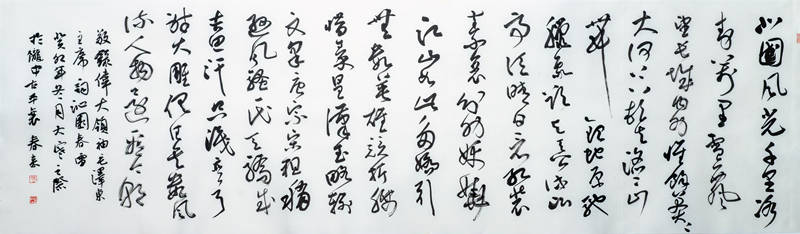 北國風光千里冰
封萬里雪飄
望長城內外惟餘莽々
大河上下頓失滔々山
舞銀蛇原馳
蠟象欲與天公試比
高須晴日看紅裝
素裹分外妖嬈
江山如此多嬌引
無數英雄競折腰
惜秦皇漢武略輸
文采唐宗宋祖稍
遜風騷一代天驕成
吉思汗只識彎弓
射大雕俱往矣數風
流人物還看今朝
敬錄偉大領袖毛澤東
主席詞沁園春雪
癸卯年月大寒之際
於隴中古平襄春來